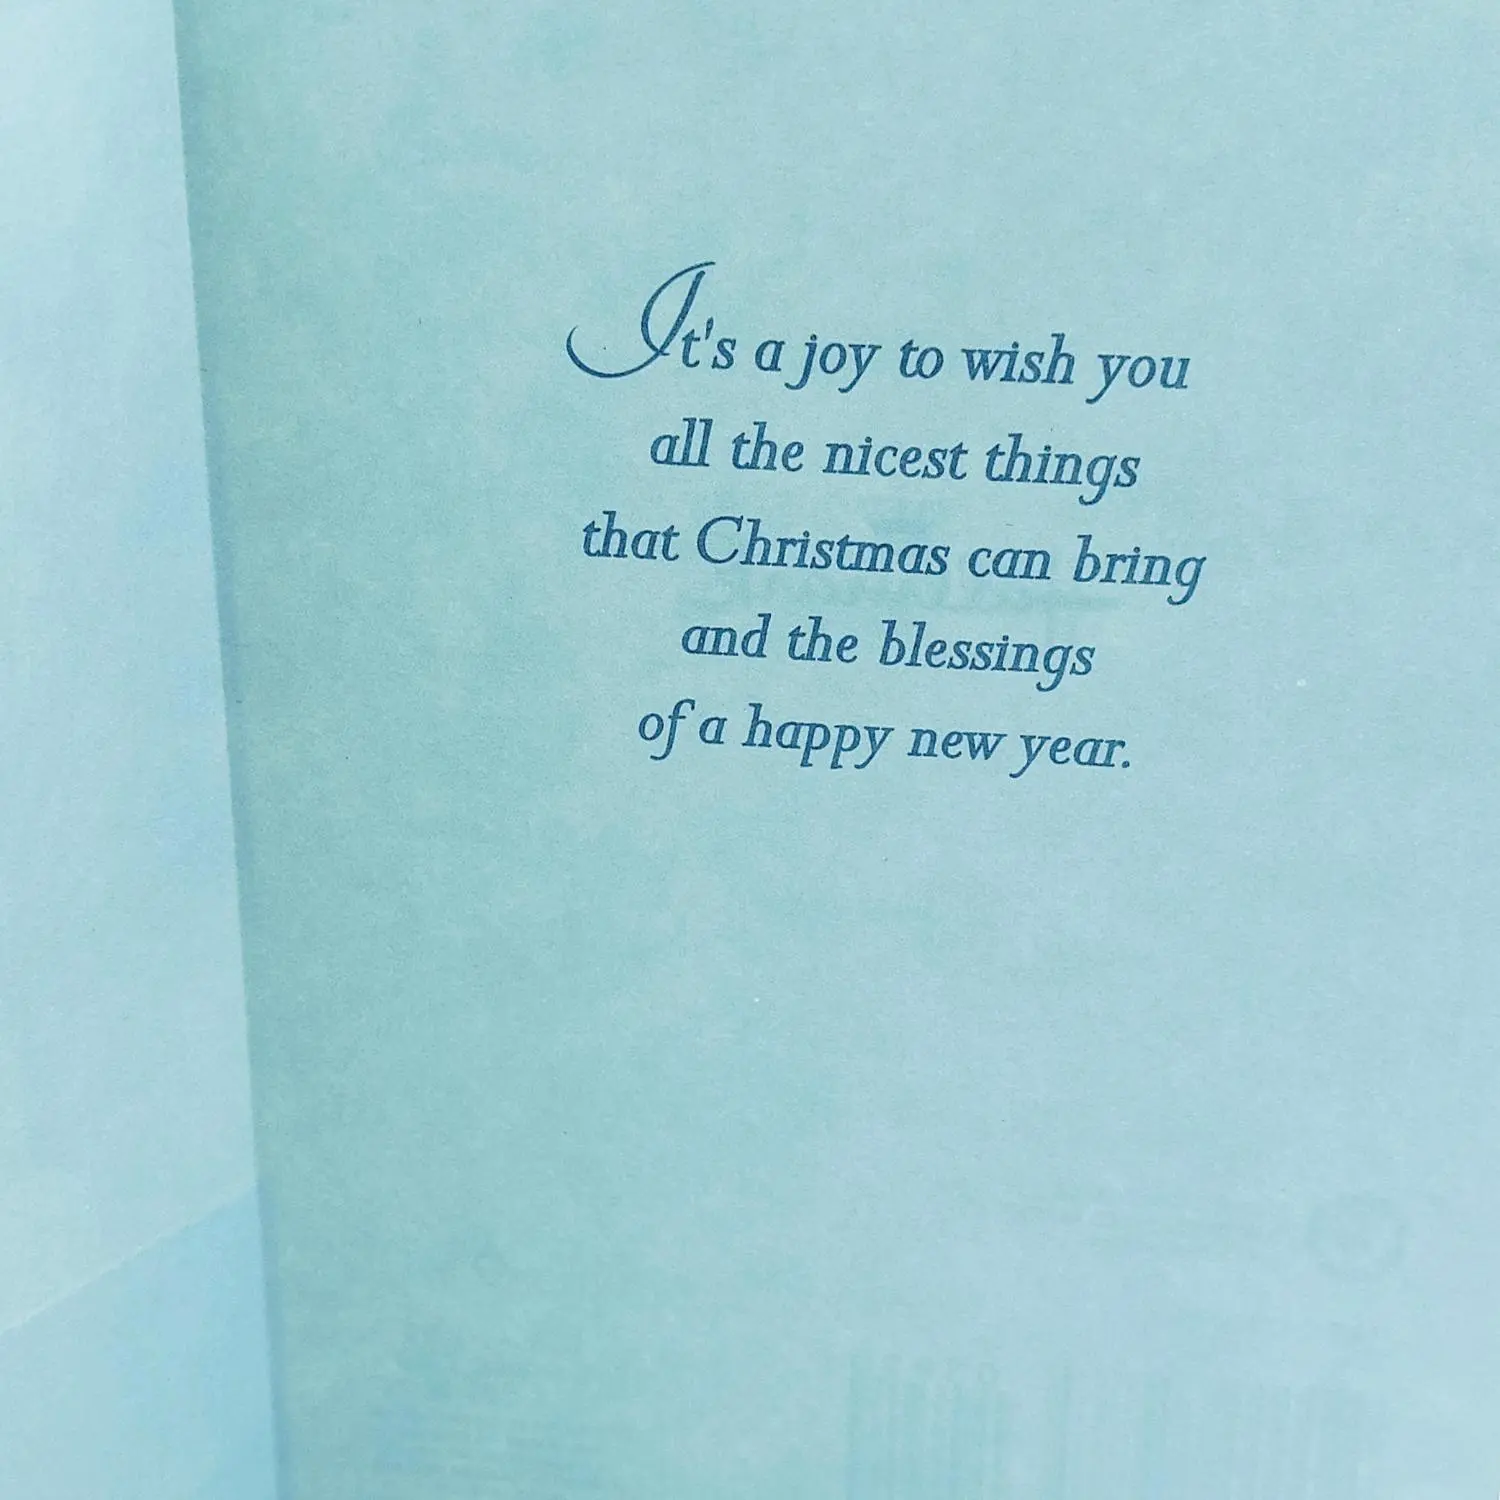 It's a joy to wish you
all the nicest things
that Christmas can bring
and the blessings
of a happy new year.